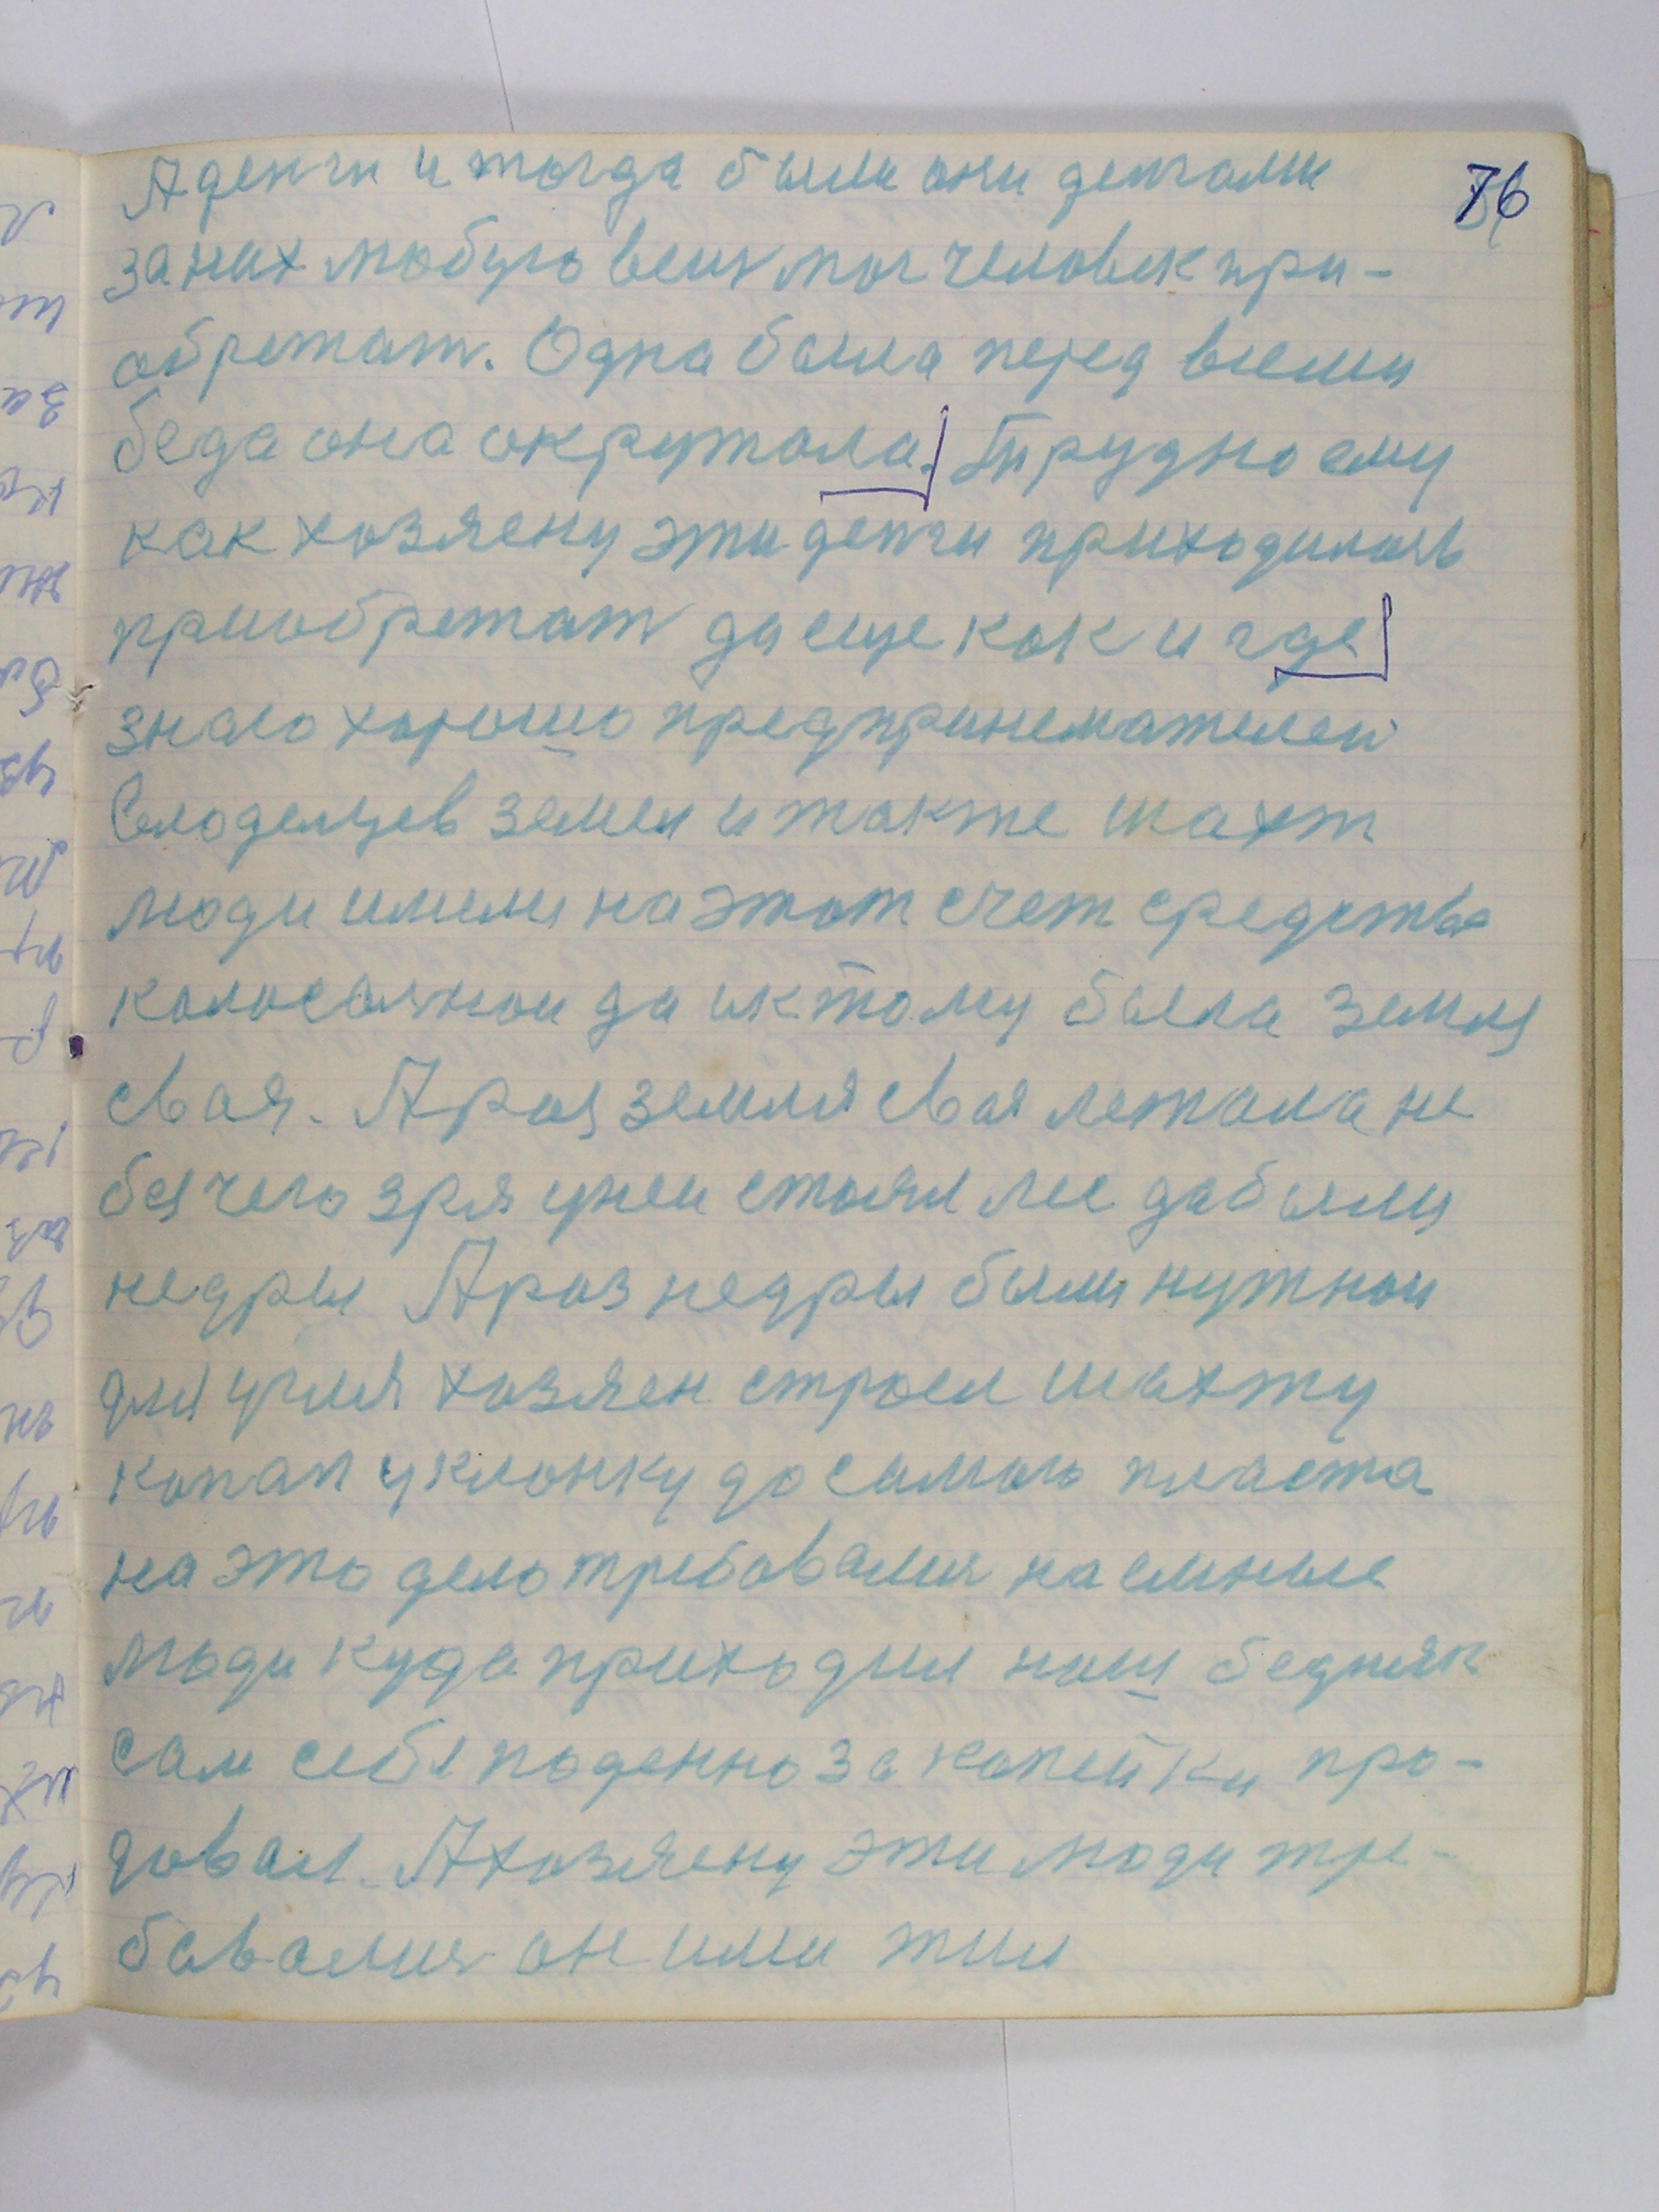 76
А денги и тогда были они денгами
за них любую вещ мог человек при-
обретат. Одна была перед всеми
беда она окружала. Трудно ему
как хозяену эти денги приходилось
приобретат да еще как и где
знаю хорошо предпринемателей
земел и также шахт
люди имели на этот счет средства
колосальнои да и к тому была земля
своя. А раз земля своя лежала не
без чего зря у неи стоял лес да были
недры А раз недры были нужнои
для угля хозяен строел шахту
копал уклонку до самого пласта
на это дело требовалися наемные
люди куда приходил наш бедняк
сам себя поденно за копейки про-
довал. А хозяену эти люди тре-
бавалися он ими жил